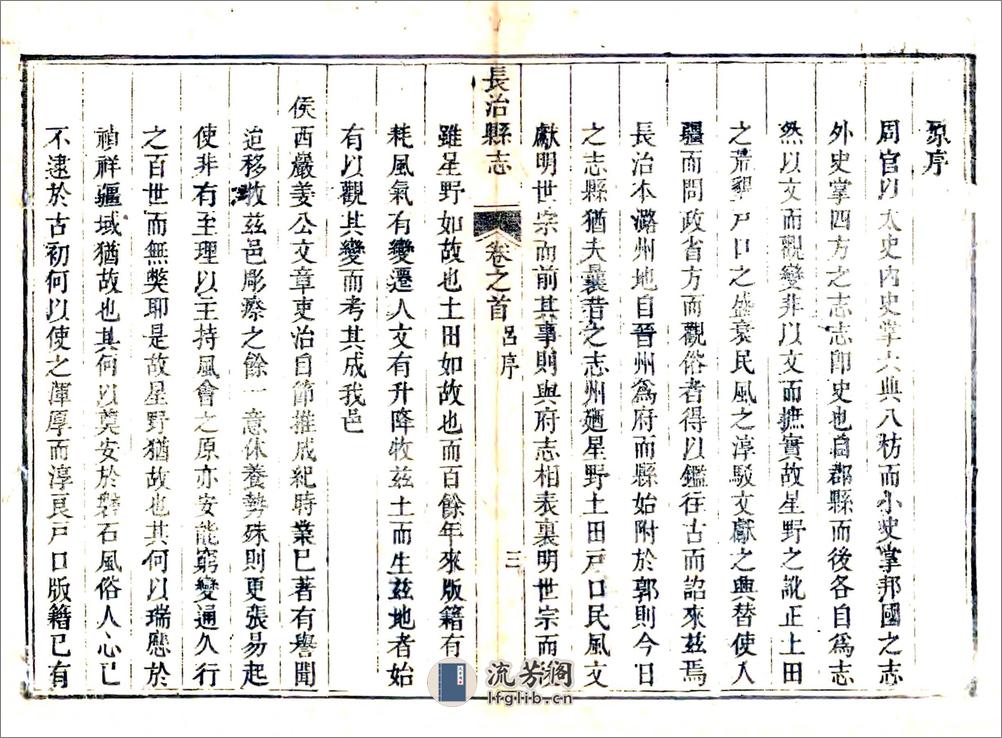 原序
周官以太史內史掌六典八枋而小史掌邦國之志
外史掌四方之志志卽史也自郡縣而後各自爲志
然以文而觀變非以文而摭實故星野之訛正土田
之荒墾戸口之盛衰民風之淳駁文獻之興替使入
疆而問政省方而觀俗者得以鑑往古而詔來茲焉
長治本潞州地自晉州爲府而縣始附於郭則今日
之志縣猶夫曩昔之志州廼星野土田戸口民風文
獻明世宗而前其事則與府志相表裏明世宗而
長治縣志 卷之首 呂序 三
雖星野如故也土田如故也而百餘年來版籍有
耗風氣有變遷人文有升降牧茲土而生茲地者始
有以觀其變而考其成我邑
侯西巖姜公文章吏治自節推成紀時業已著有譽聞
迨移牧茲邑彫瘵之餘一意休養勢殊則更張易起
使非有至理以主持風會之原亦安能窮變通久行
之百世而無獘耶是故星野猶故也其何以瑞應於
禎祥疆域猶故也其何以奠安於磐石風俗人心已
不逮於古初何以使之渾厚而淳良戸口版籍已有
流芳阁
lfglib.cn